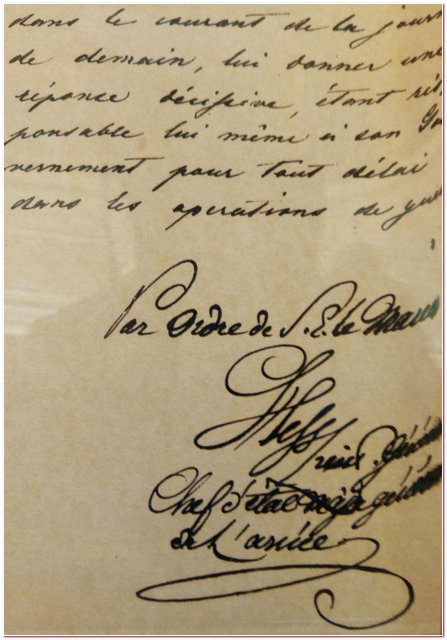 dans le courant de la jour
de demain, lui donner une
réponse décisive, étant res
ponsable lui même à son Gou
vernement pour tout délai
dans les opérations de gue
Par Ordre de S. E. le Marec
Hess
Chef d'état général
de L'armée